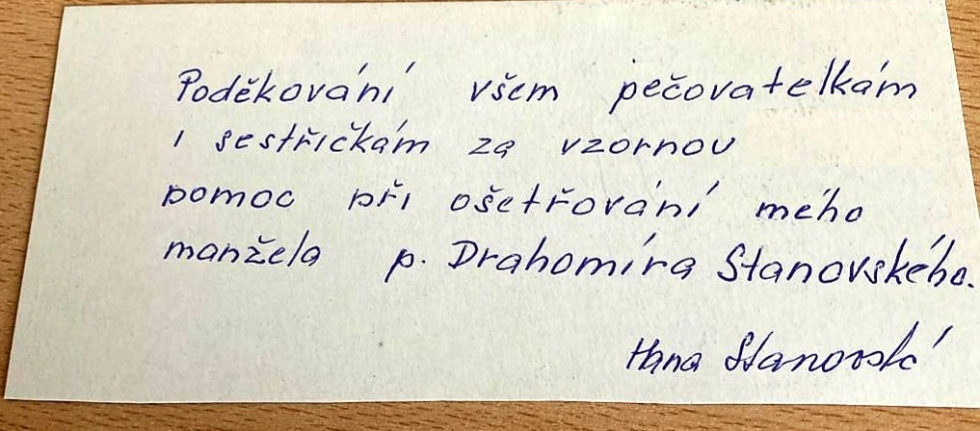 Poděkování všem pečovatelkám
i sestřičkám za vzornou
pomoc při ošetřování mého
manžela p. Drahomíra Stanovského.
Hana Stanovská